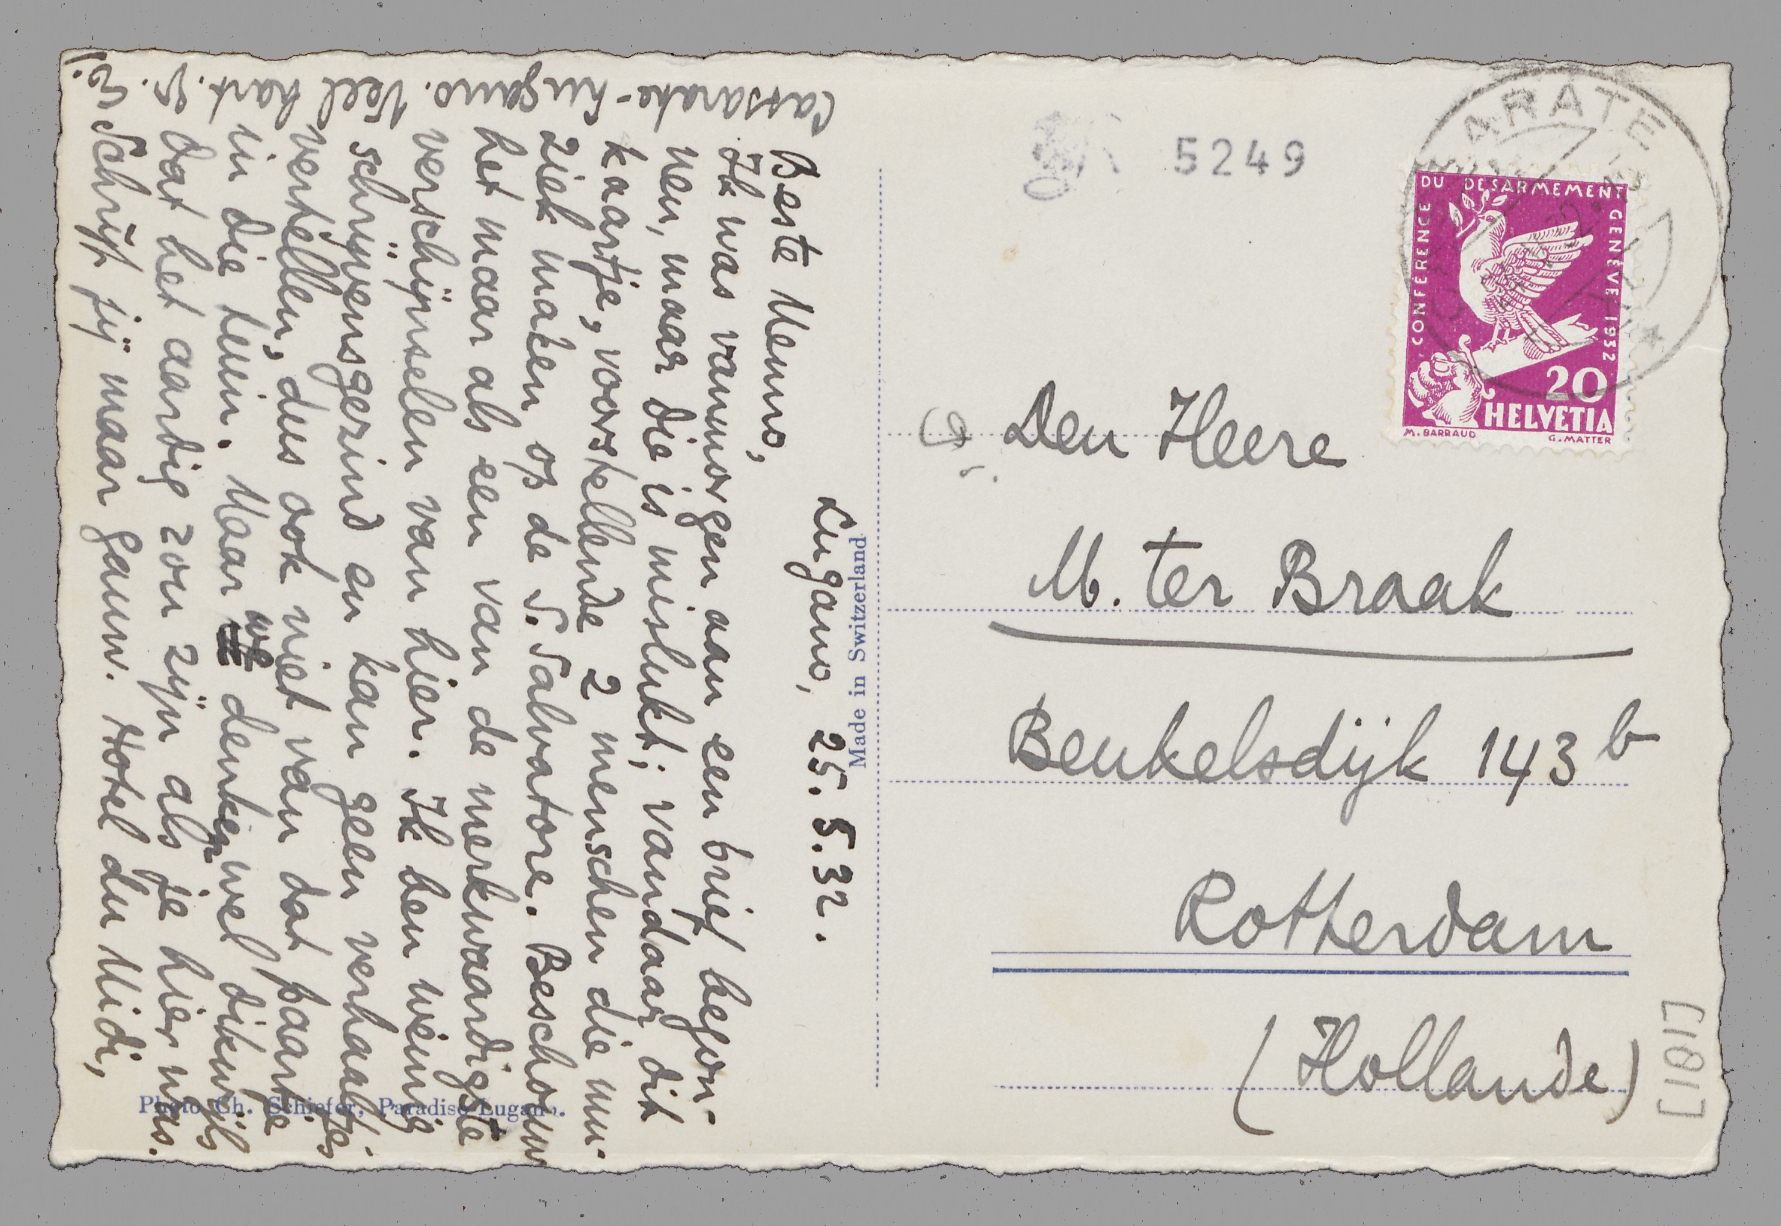 Lugano, 25.5.32.
Beste Menno,
Ik was vanmorgen aan een brief begon-
nen, maar die is mislukt; vandaar dit
kaartje, voorstellende 2 menschen die mu-
ziek maken op de S. Salvatore. Beschouw
het maar als een van de merkwaardigste
verschijnselen van hier. Ik ben weinig
schrijvensgezind en kan geen verhaaltjes
vertellen, dus ook niet van dat paartje
in die tuin. Maar we denken wel dikwijls
dat het aardig zou zijn als je hier was.
Schrijf jij maar gauw. Hotel du Midi,
Cassarate-Lugano. Veel hart. gr.
Made in Switzerland
Photo Ch. Schiefer, Paradiso-Lugano.
5249
ARATE
CONFERENCE DU DESARMEMENT GENÈVE 1932
20
HELVETIA
M. BARRAUD
G. MATTER
Den Heere
M. ter Braak
Beukelsdijk 143 b
Rotterdam
(Hollande)
[181]